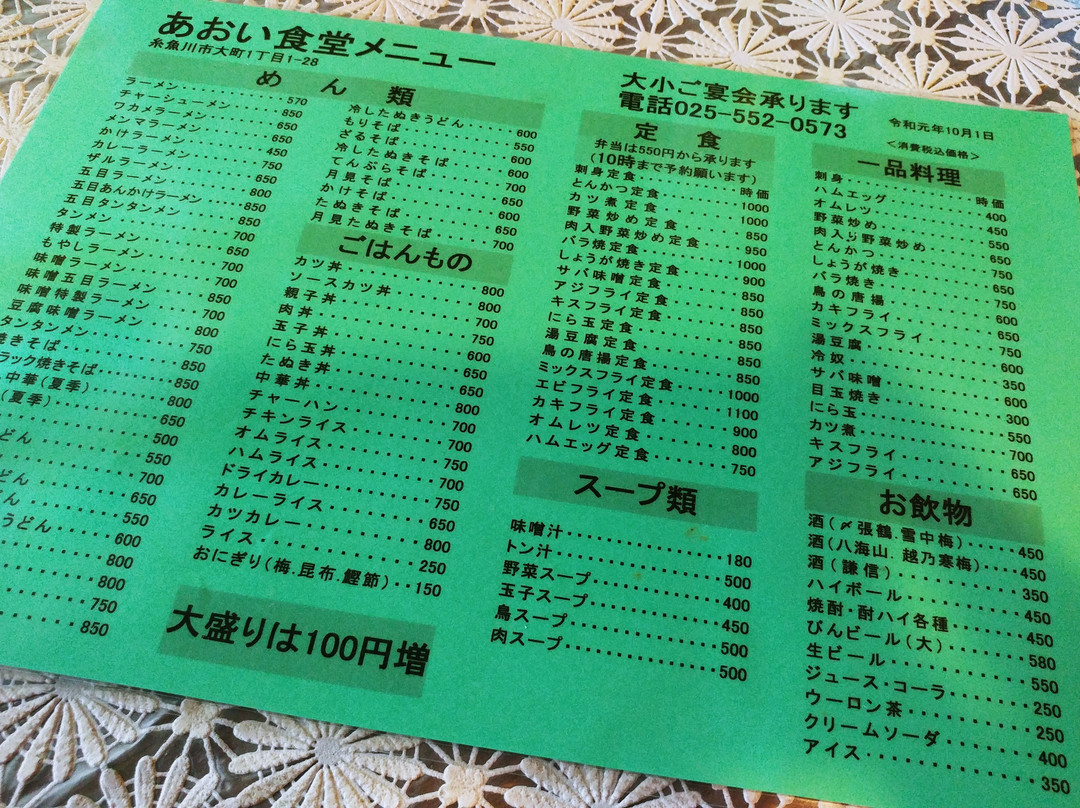 あおい食堂メニュー
糸魚川市大町1丁目1-28
めん類
ラーメン・・・570
チャーシューメン・・・850
ワカメラーメン・・・650
メンマラーメン・・・650
かけラーメン・・・450
カレーラーメン・・・750
ザルラーメン・・・650
五目ラーメン・・・800
五目あんかけラーメン・・・850
五目タンタンメン・・・850
タンメン・・・700
特製ラーメン・・・700
もやしラーメン・・・650
味噌ラーメン・・・700
味噌五目ラーメン・・・850
味噌特製ラーメン・・・800
豆腐味噌ラーメン・・・800
タンタンメン・・・750
焼きそば
ラック焼きそば・・・850
中華(夏季)
(夏季)
どん・・・500
550
どん・・・700
ん・・・650
うどん・・・550
600
800
800
750
850
冷したぬきうどん・・・600
もりそば・・・550
ざるそば・・・600
冷したぬきそば・・・600
てんぷらそば・・・700
月見そば・・・600
かけそば
たぬきそば
月見たぬきそば・・・700
ごはんもの
カツ丼・・・800
ソースカツ丼・・・800
親子丼・・・700
肉丼・・・750
玉子丼・・・600
にら玉丼・・・650
たぬき丼・・・650
中華丼・・・800
チャーハン・・・700
チキンライス・・・700
オムライス・・・750
ハムライス・・・700
ドライカレー・・・750
カレーライス・・・650
カツカレー・・・800
ライス・・・250
おにぎり(梅.昆布.鰹節)・・150
大盛りは100円増
大小ご宴会承ります
電話025-552-0573
令和元年10月1日
<消費税込価格>
定食
弁当は550円から承ります
(10時まで予約願います)
刺身定食・・・時価
とんかつ定食・・・1000
カツ煮定食・・・1000
野菜炒め定食・・・850
肉入り野菜炒め定食・・・950
バラ焼定食・・・1000
しょうが焼き定食・・・900
サバ味噌定食・・・850
アジフライ定食・・・850
キスフライ定食・・・850
にら玉定食・・・850
湯豆腐定食・・・850
鳥の唐揚定食・・・850
ミックスフライ定食・・・1000
エビフライ定食・・・1100
カキフライ定食・・・900
オムレツ定食・・・800
ハムエッグ定食・・・750
スープ類
味噌汁・・・180
トン汁・・・500
野菜スープ・・・400
玉子スープ・・・450
鳥スープ・・・500
肉スープ・・・500
一品料理
刺身・・・時価
ハムエッグ・・・400
オムレツ
野菜炒め・・・550
肉入り野菜炒め・・・650
とんかつ・・・750
しょうが焼き・・・650
バラ焼き・・・750
鳥の唐揚・・・600
カキフライ・・・650
ミックスフライ・・・750
湯豆腐・・・600
冷奴・・・350
サバ味噌・・・600
目玉焼き・・・300
にら玉・・・550
カツ煮・・・700
キスフライ・・・650
アジフライ・・・650
お飲物
酒(〆張鶴.雪中梅)・・・450
酒(八海山.越乃寒梅)・・・450
酒(謙信)・・・350
ハイボール・・・450
焼酎・酎ハイ各種・・・450
びんビール(大)・・・580
生ビール・・・550
ジュース・コーラ・・・250
ウーロン茶・・・250
クリームソーダ・・・400
アイス・・・350